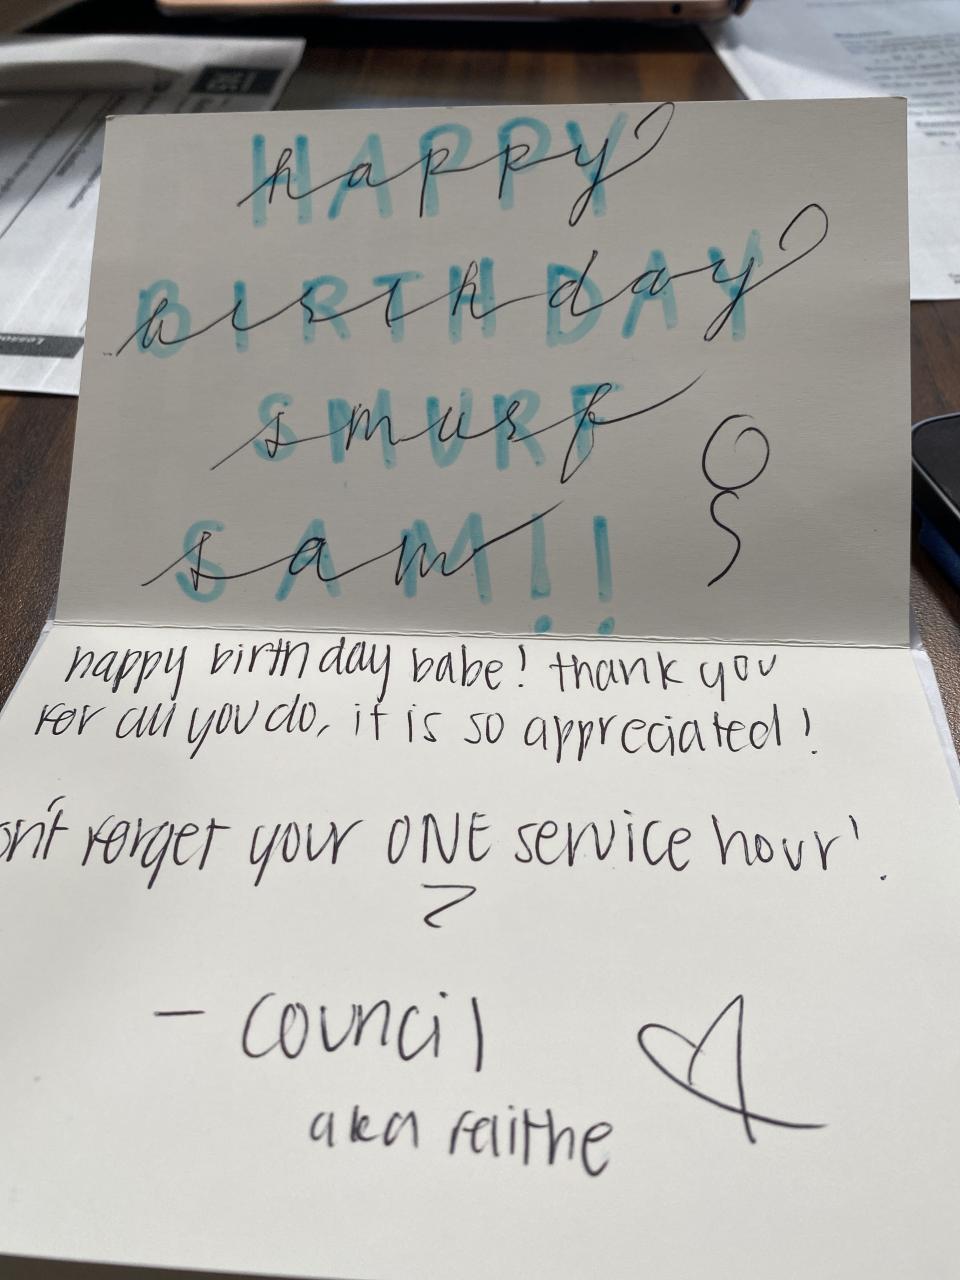 HAPPY
happy
BIRTHDAY
birthday
SMURF
smurf
SAM!!
sam
happy birthday babe! thank you
for all you do, it is so appreciated!
on't forget your ONE service hour!
- council
aka faithe